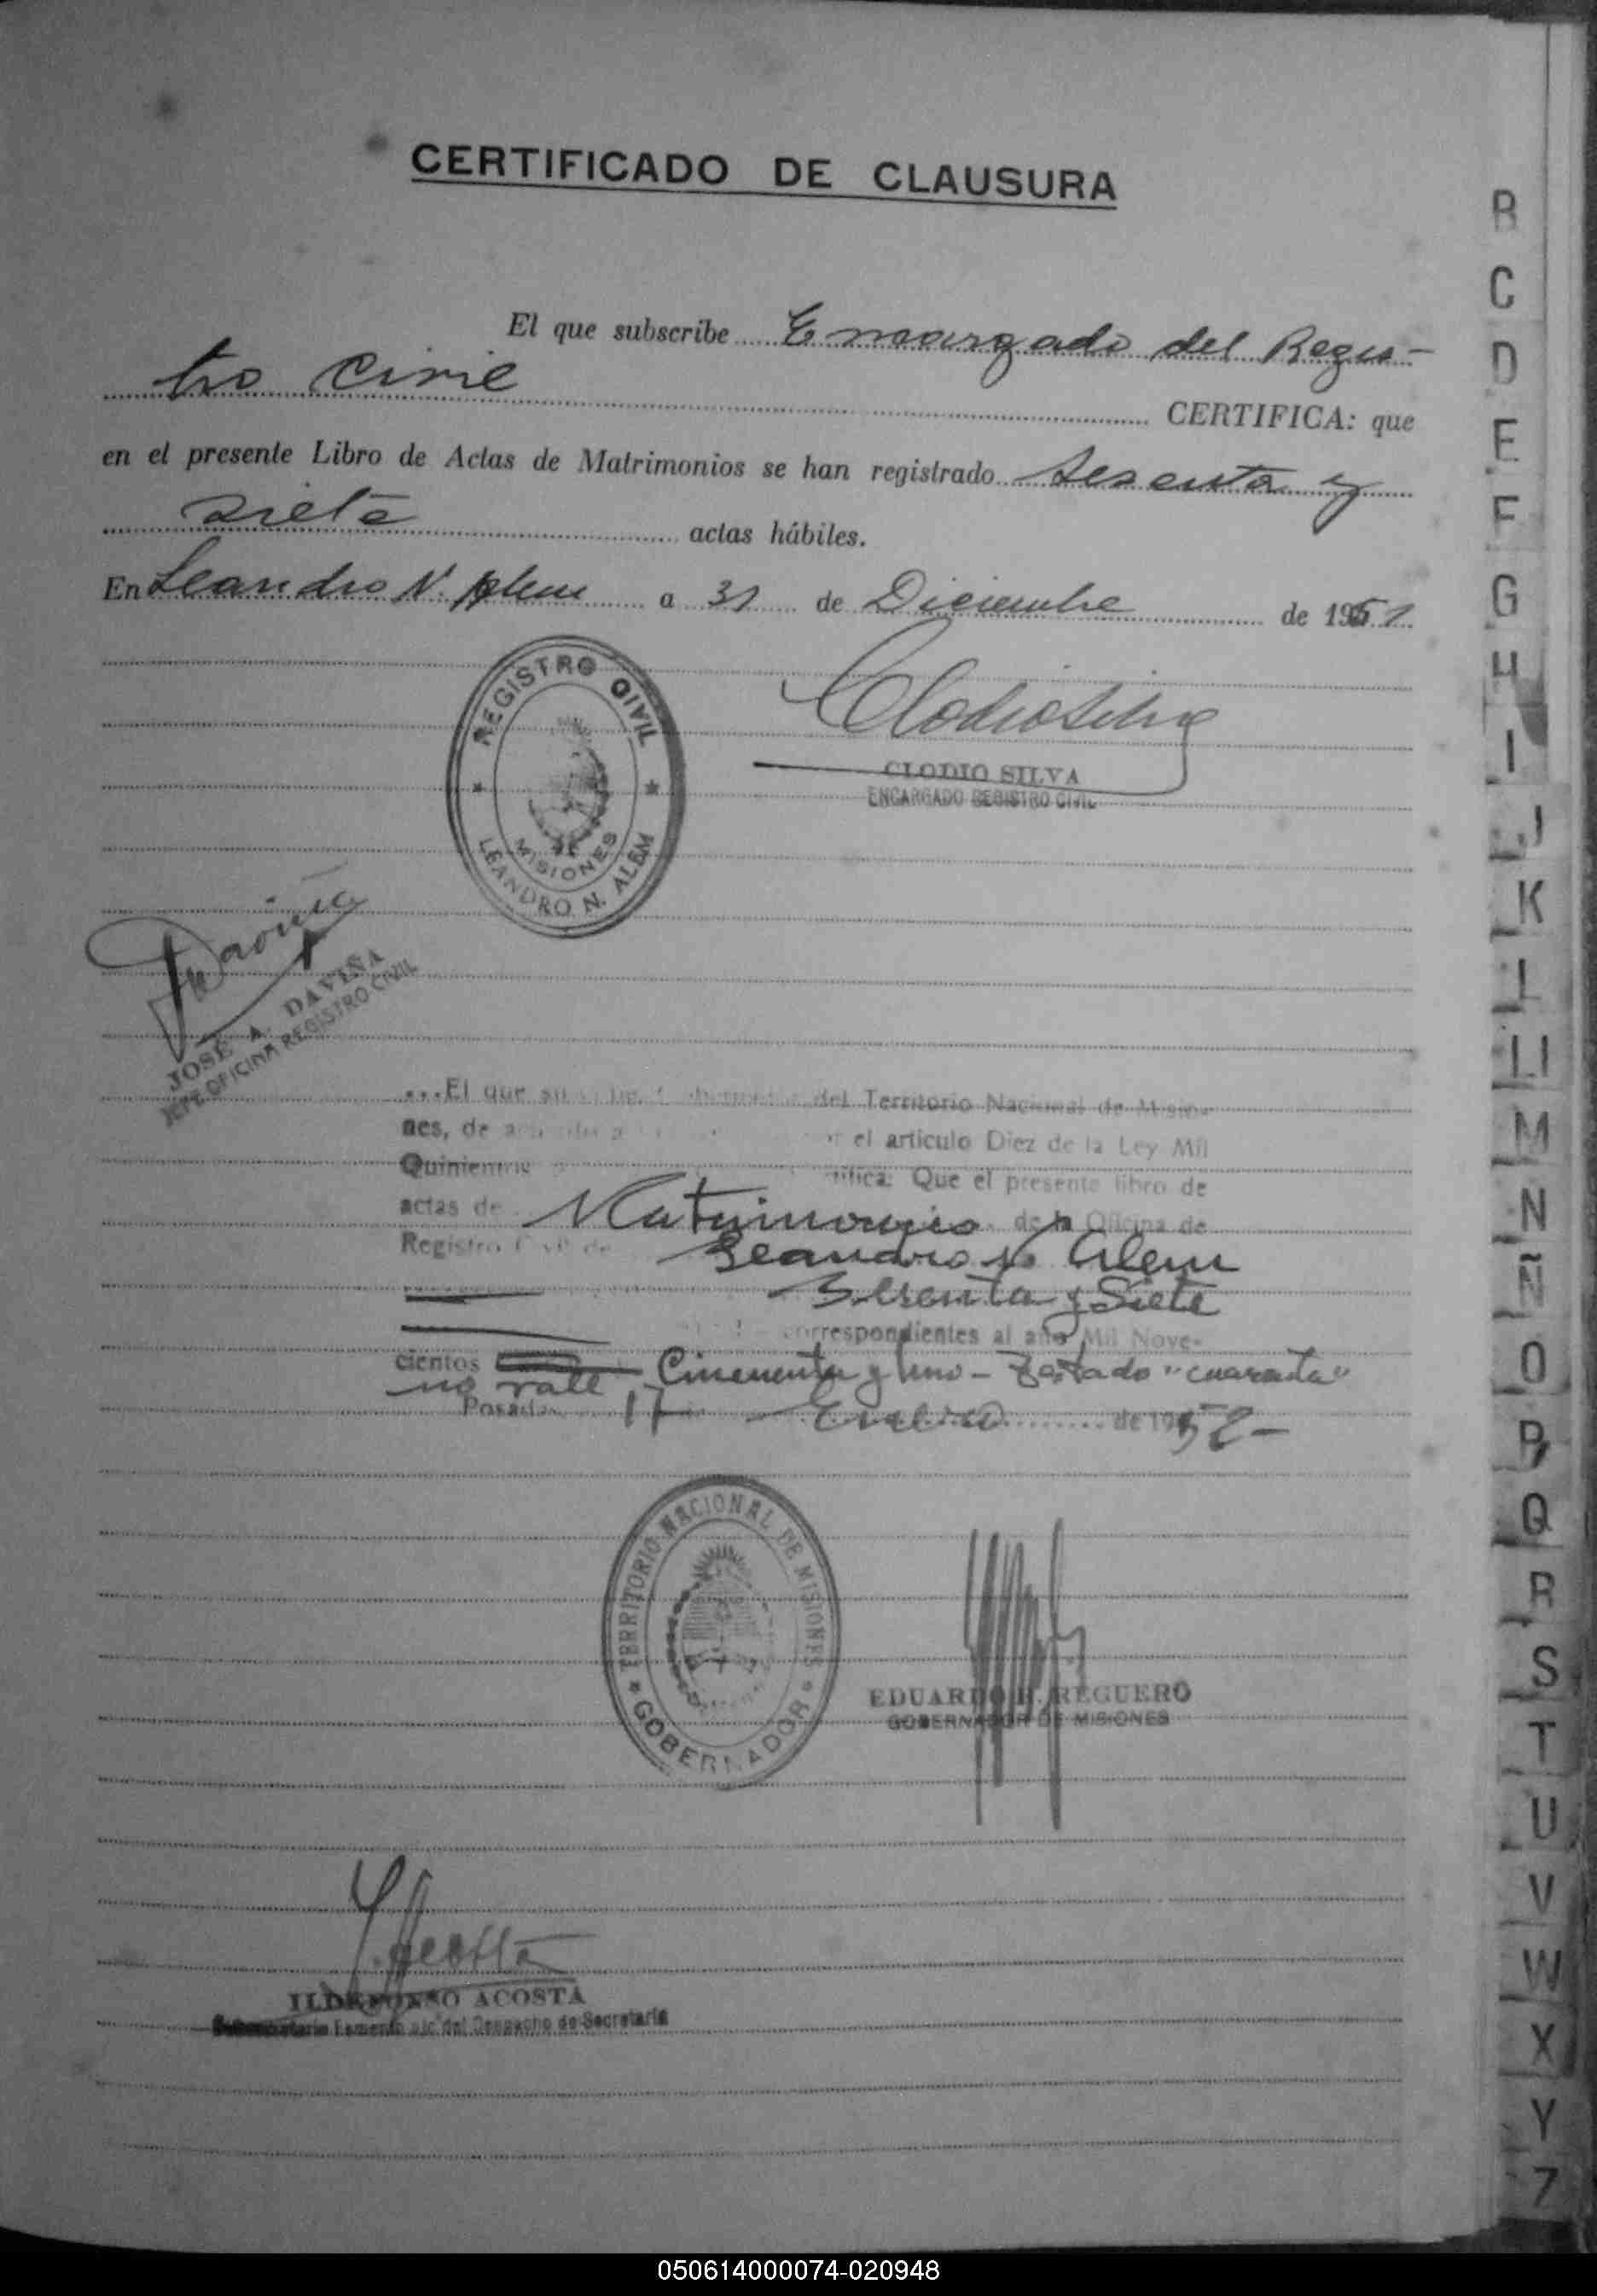 CERTIFICADO DE CLAUSURA
El que subscribe Encargado del Regis-
tro Civil CERTIFICA: que
en el presente Libro de Actas de Matrimonios se han registrado Sesenta y
siete actas hábiles.
En Leandro N. Alem a 31 de Diciembre de 1951
REGISTRO CIVIL
MISIONES
LEANDRO N. ALEM
ClodioSilva
CLODIO SILVA
ENCARGADO REGISTRO CIVIL
Daviña
JOSE A. DAVIÑA
JEFE OFICINA REGISTRO CIVIL
...El que del Territorio Nacional de Misio-
nes, de el articulo Diez de la Ley Mil
Quinientos Que el presente libro de
actas de Matrimonios de la Oficina de
Registro Civil de Leandro N Alem
Sesenta y Siete
correspondientes al año Mil Nove-
cientos Cincuenta y Uno - Testado "cuarenta"
no vale
Posadas 17 Enero de 1952-
TERRITORIO NACIONAL DE MISIONES
GOBERNADOR
EDUARDO H. REGUERO
GOBERNADOR DE MISIONES
Acosta
ILDEFONSO ACOSTA
del Despacho de Secretaría
B
C
D
E
F
G
H
I
J
K
L
Ll
M
N
Ñ
O
P
Q
R
S
T
U
V
W
X
Y
Z
050614000074-020948